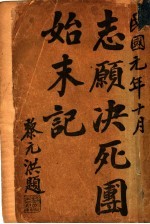 民國元年十月
志願决死團
始末記
黎元洪題